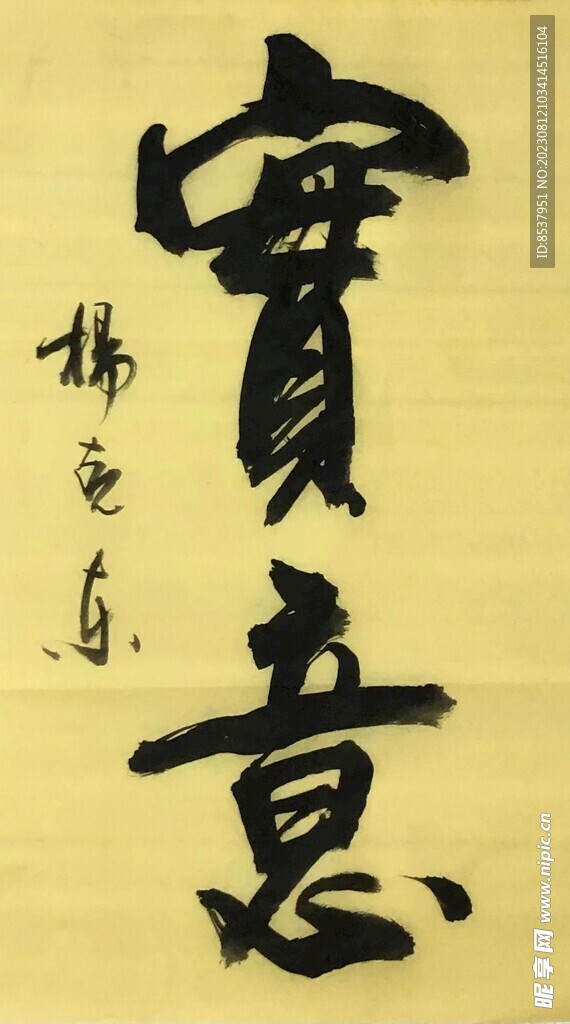 實意
楊克东
ID:8537951 NO:20230812103414516104
昵享网 www.nipic.cn